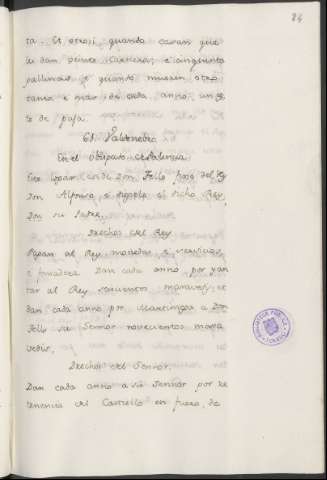 24
ta. Et otrosi, quando casan que
le dan veinte e cinquenta
pallencias, e quando mueren otro
tanto e mas de cada anno, un
to de paja.
El Valdenebro
En el Obispado de Palencia
Este logar es de Don Tello fijo del Rey
Don Alfonso, e diogelo el dicho Rey,
Don su Padre.
Derechos del Rey
Pagan al Rey monedas e servicios
e fonsadera. Dan cada anno por yan
tar al Rey seicientos maraveis, et
dan cada anno por Martiniega a Don
Tello su Sennor novecientos mara
vedis.
Derechos del Sennor.
Dan cada anno a su Sennor por re
tenencia del Castiello en fuero, de